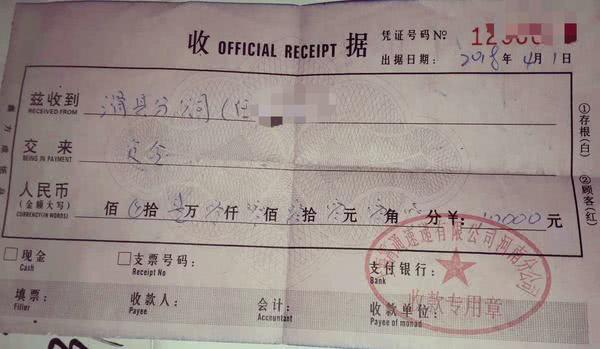 收 OFFICIAL RECEIPT 据
凭证号码 №
出据日期: 2018 年 4 月 1 日
兹收到
RECEIVED FROM
滑县分公司
交来
BEING IN PAYMENT
人民币
(金额大写)
CURRENCY(IN WORDS)
佰 拾 壹 万 零 仟 零 佰 零 拾 零 元 零 角 分 ¥: 10000 元
①存根(白)
②顾客(红)
现金
Cash
支票号码:
Receipt No
支付银行:
Bank
填票:
Filler
收款人:
Payee
会计:
Accountant
收款单位:
Payee of monad
通速递有限公司河南分公司
收款专用章